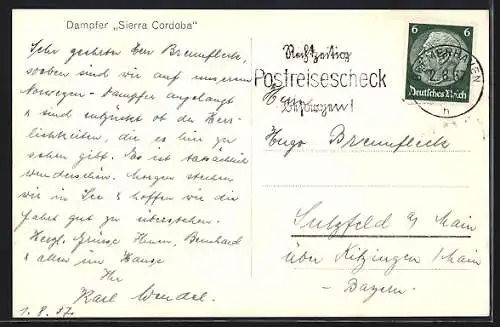 Dampfer „Sierra Cordoba"
Sehr geehrter Herr Brennfleck,
soeben sind wir auf unserem
Norwegen-Dampfer angelangt
& sind entzückt ob der Herr-
lichkeiten, die es hier zu
sehen gibt. Es ist tatsächlich
wunderschön. Morgen stechen
wir in See & hoffen wir die
Fahrt gut zu überstehen.
Herzl. Grüsse Ihnen, Bernhard
& allen im Hause
Ihr
Karl Wendel.
1. 8. 37.
Rechtzeitig
Postreisescheck
besorgen!
6 6
Deutsches Reich
BREMERHAVEN
2.8.
h
Herrn
Hugo Brennfleck
Sulzfeld a/ Main
über Kitzingen /Main
- Bayern -